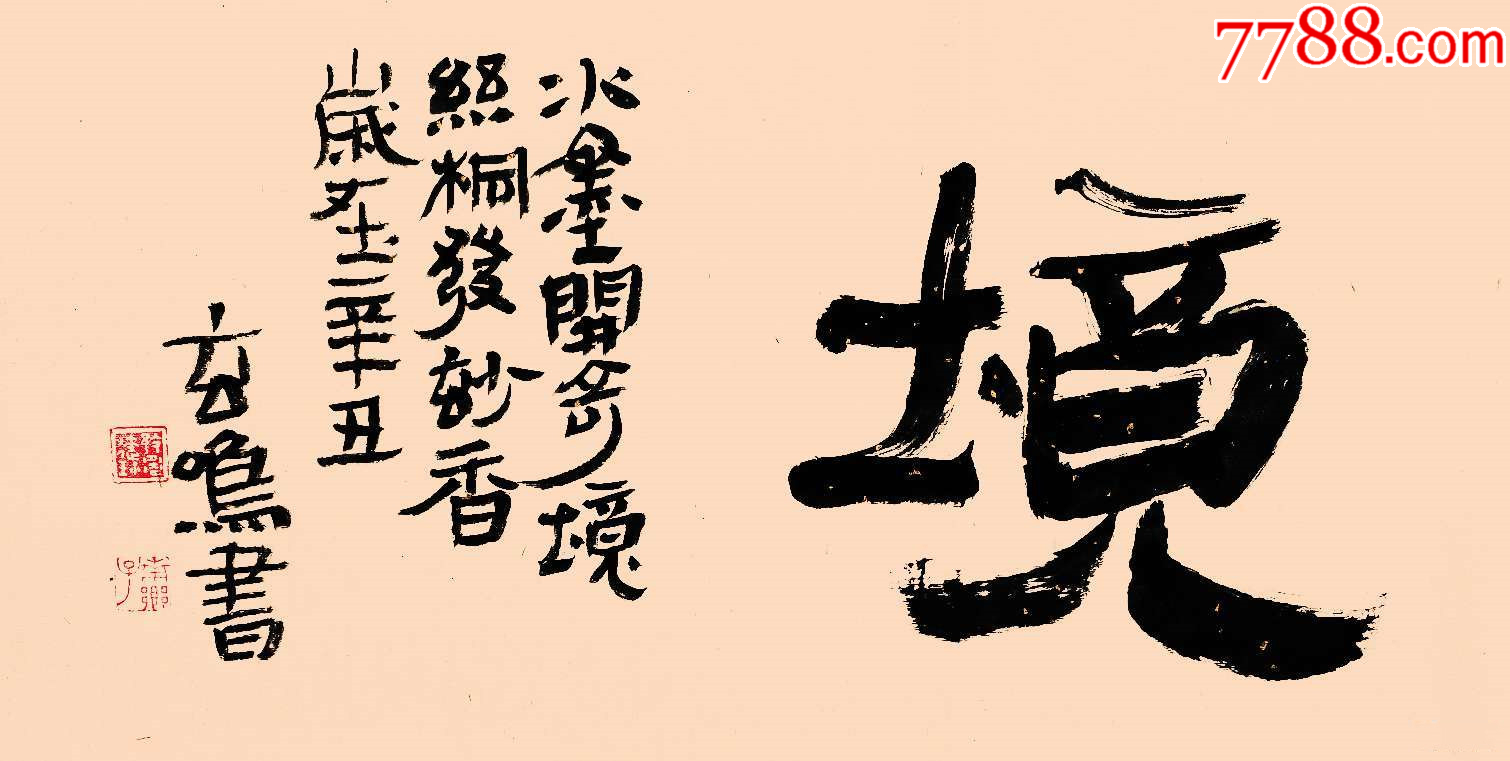 7788.com
境
水墨開奇境
絲桐發玅香
歲在辛丑
玄鳴書